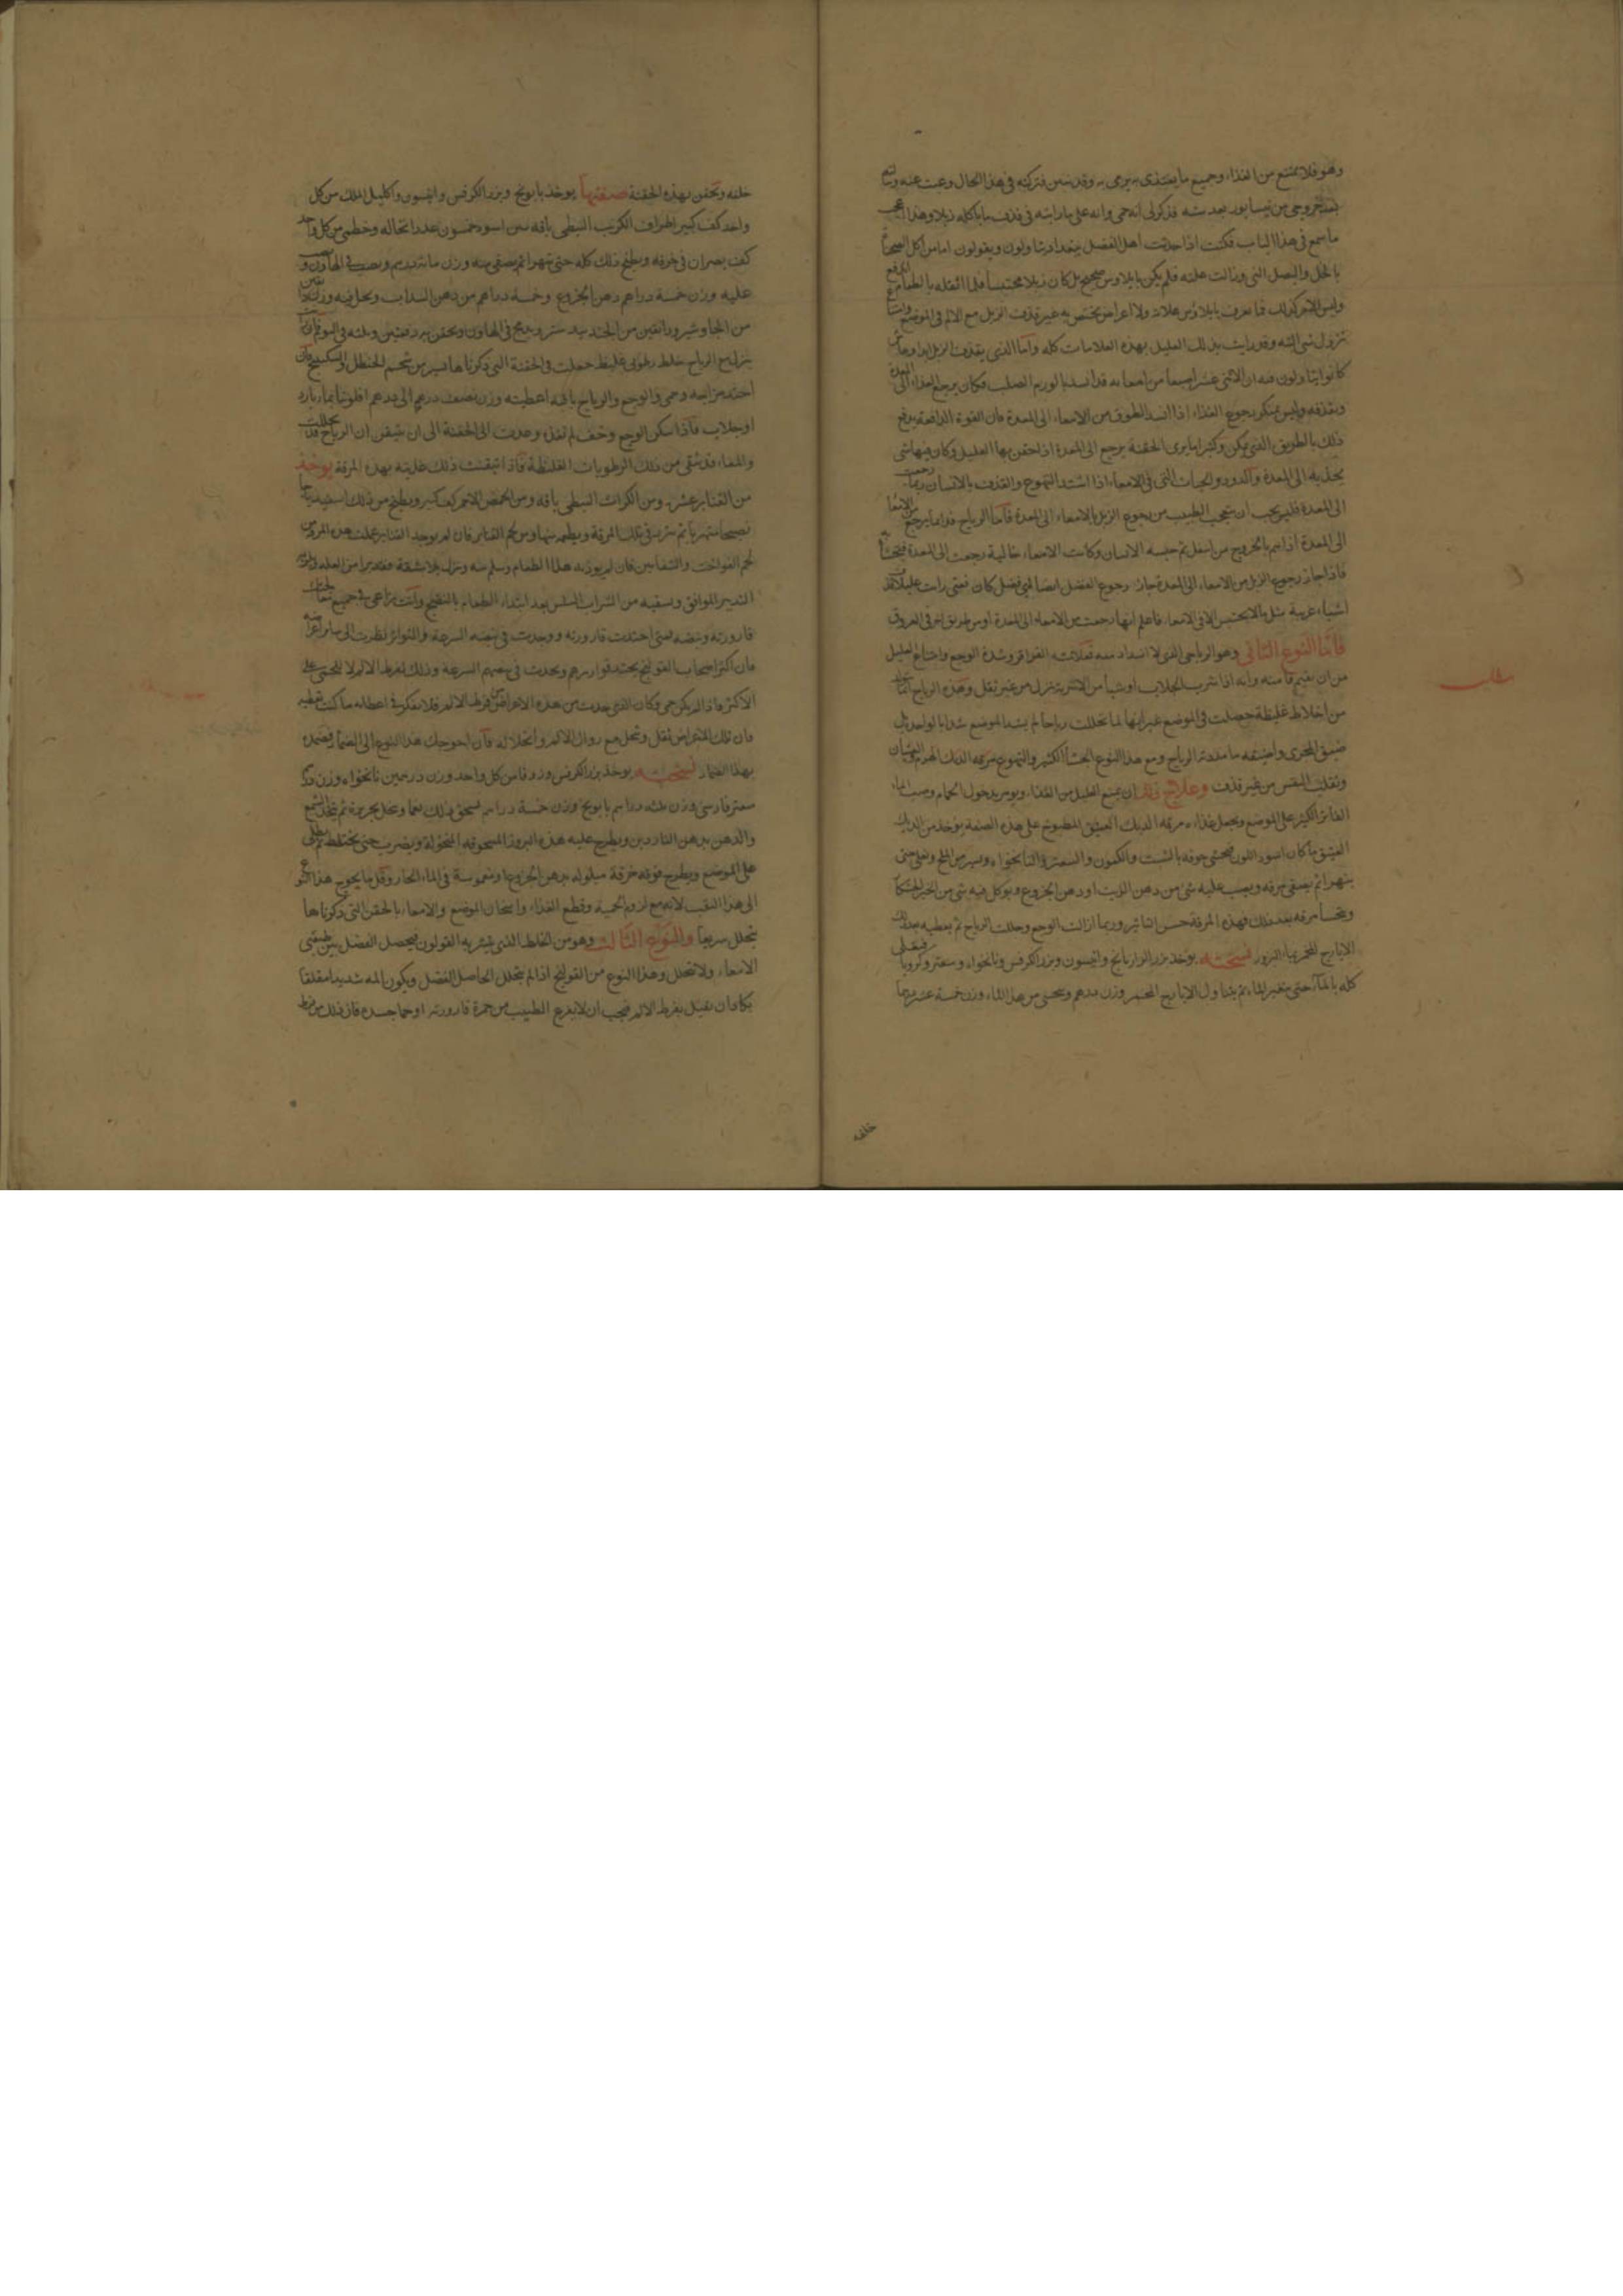 وهو فلا يمتنع من الغذاء وجميع ما يغتذى به يرمى به وقد سمن فتركته فى هذا الحال وغبت عنه
خروجى من نيسابور بعد سنة فذكر لى انه حى وانه على ما رايته فى قذف ما ياكله زبلا وهذا اعجب
ما سمع فى هذا الباب فكنت اذا حدثت اهل الفضل ببغداد يتأولون ويقولون اما من اكل
بالخل والبصل التى وزالت علته فلم يكن بايلاوس صحيح بل كان زبلا محتبسا فلما اثقله بالطعام
وليس الامر كذلك فما نعرف بايلاوس علامة ولا اعراض يختص به غير قذف الزبل مع الالم فى الموضع
نزول شى البتة وقد رايت بذلك العليل بهذه العلامات كله واما الذى يقذف الزبل
كانوا يتأولون فيه ان الاثنى عشر اصبعا من امعائه قد انسد بالورم الصلب فكان يرجع الغذاء الى المعدة
ويقذفه وليس بمنكر رجوع الغذاء اذا انسد الطريق من الامعاء الى المعدة فان القوة الدافعة يدفع
ذلك بالطريق الذى يمكن وكثيرا ما يرى الحقنة يرجع الى المعدة اذا حقن بها العليل وكان فيها شى
يجذبه الى المعدة والدود والحيات التى فى الامعاء اذا اشتد التهوع والقذف بالانسان ربما رجعت
الى المعدة فليس يجب ان يتعجب الطبيب من رجوع الزبل بالامعاء الى المعدة فاما الرياح فدايما يرجع من الامعا
الى المعدة اذا هم بالخروج من اسفل ثم حبسه الانسان وكانت الامعاء خالية رجعت الى المعدة
فاذا جاز رجوع الزبل من الامعاء الى المعدة جاز رجوع الفضل ايضا لاى فضل كان فمتى رايت عليلا قد
اشياء غريبة مثل ما لا يحتبس الا فى الامعاء فاعلم انها رجعت من الامعاء الى المعدة او من طريق اخر فى العروق
فاما النوع الثانى وهو الرياحى الذى لا انسداد معه فعلامته القواقر وشدة الوجع وامتناع العليل
من ان يقيم قامته وانه اذا شرب الجلاب او شيأ من الاشربة نزل من غير ثقل وهذه الرياح انما تتولد
من اخلاط غليظة حصلت فى الموضع غير انها لما تحللت رياحا لم يسد الموضع سدا بالواحدة بل
ضيق المجرى واضيقه ما مددته الرياح ومع هذا النوع الجشأ الكثير والتهوع
وتقلب النفس من غير قذف وعلاج ذلك ان يمنع العليل من الغذاء ويومر بدخول الحمام وصب الماء
الفاتر الكثير على الموضع ويجعل غذاءه مرقة الديك العتيق المطبوخ على هذه الصفة يوخذ من الديك
العتيق ما كان اسود اللون فيحشى جوفه بالشبت والكمون والسعتر والنانخواه ويسير من الملح ويغلى حتى
يتهرا ثم يصفى مرقه ويصب عليه شى من دهن الزيت او دهن الخروع ويوكل فيه شى من الخبز الخشكار
ويتحسا مرقه بعد ذلك فهذه المرقة حسن التاثير وربما ازالت الوجع وحللت الرياح ثم يعطيه بعد ذلك
الايارج المخمر بماء البزور نسخته يوخذ بزر الرازيانج وانيسون وبزر الكرفس ونانخواه وسعتر وكرويا فيغلى
كله بالماء حتى يتغير الماء ثم يتناول الايارج المخمر وزن درهم ويحسى من هذا الماء وزن خمسة عشر درهما
خلفه
مطلب
خلفه وتحقن بهذه الحقنة صفتها يوخذ بابونج وبزر الكرفس وانيسون واكليل الملك من كل
واحد كف كبير اطراف الكرنب النبطى باقة تين اسود خمسون عددا نخالة وخطمى من كل واحد
كف يصران فى خرقة ويطبخ ذلك كله حتى يتهرا ثم يصفى منه وزن مائة درهم ويصب فى الهاون
عليه وزن خمسة دراهم دهن الخروع وخمسة دراهم من دهن السداب ويحل فيه وزن
من الجاوشير ودانقين من الجند بيدستر ويدبج فى الهاون ويحقن به دفعتين وثلثه فى اليوم
ينزل مع الرياح خلط رطوبى غليظ جعلت فى الحقنة التى ذكرناها يسير من شحم الحنظل والسكبينج فان
احتد مزاجه وحمى والوجع والرياح باقية اعطيته وزن نصف درهم الى درهم افلونيا بماء بارد
او جلاب فاذا سكن الوجع وخف لم تغفل وعدت الى الحقنة الى ان تتيقن ان الرياح قد تحللت
والمعاء قد نقى من تلك الرطوبات الغليظة فاذا تيقنت ذلك غذيته بهذه المرقة يوخذ
من القنابر عشرة ومن الكراث النبطى باقة ومن الحمص الاحمر كف كبير ويطبخ من ذلك اسفيدباجا
نضيجا متهريا ثم يثرد فى تلك المرقة ويطعمه منها ومن لحم القنابر فان لم يوجد القنابر عملت هذه المرقة من
لحم الفواخت والشفانين فان لم يوذيه هذا الطعام وسلم منه ونزل بلا مشقة فقد برا من العلة
التدبير الموافق ويسقيه من الشراب السلس بعد ابتداء الطعام بالنضج وانت تراعى فى جميع
قارورته ونبضه فمتى احتدت قارورته ووجدت فى نبضه السرعة والتواتر نظرت الى ساير اعراضه
فان اكثر اصحاب القولنج يحتد قواريرهم ويحدث فى نبضهم السرعة وذلك لفرط الالم لا للحمى على
الاكثر فاذا لم يكن حمى وكان الذى حدث من هذه الاعراض من فرط الالم فلا تفكر فى اعطائه ما كنت تعطيه
فان تلك الاعراض تقل وتنحل مع زوال الالم وانحلاله فان احوجك هذا النوع الى الضماد فضمده
بهذا الضماد نسخته يوخذ بزر الكرفس وزوفا من كل واحد وزن درهمين نانخواه وزن
سعتر فارسى وزن ثلثة دراهم بابونج وزن خمسة دراهم تسحق ذلك نعما وتنخل بحريرة ثم يتخذ الشمع
والدهن بدهن الناردين ويطرح عليه هذه البزور المسحوقة المنخولة ويضرب حتى يختلط ثم يطلى
على الموضع ويطرح فوقه خرقة مبلولة بدهن الخروع او مغموسة فى الماء الحار وقل ما يحوج هذا النوع
الى هذا التعب لانه مع لزوم الحمية وقطع الغذاء واسخان الموضع والامعاء بالحقن التى ذكرناها
يتحلل سريعا والنوع الثالث وهو من الخلط الذى يتبر به القولون فيحصل الفضل بين طبقتى
الامعاء ولا يتحلل وهذا النوع من القولنج اذا لم يتحلل الحاصل الفضل ويكون المه شديدا مقلقا
يكاد ان يقتل بفرط الالم فيجب ان لا يفزع الطبيب من حمرة قارورته او حما جسده فان ذلك من فرط